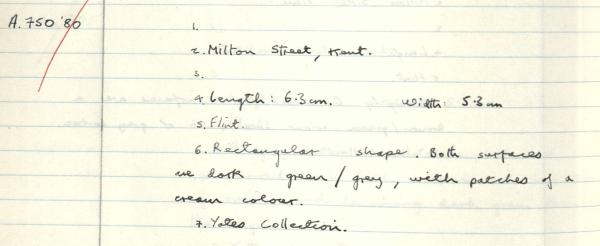 A.750 '80
1.
2. Milton Street, Kent.
3.
4. Length: 6.3cm. Width: 5.3cm
5. Flint.
6. Rectangular shape. Both surfaces
are dark green/grey, with patches of a
cream colour.
7. Yates Collection.